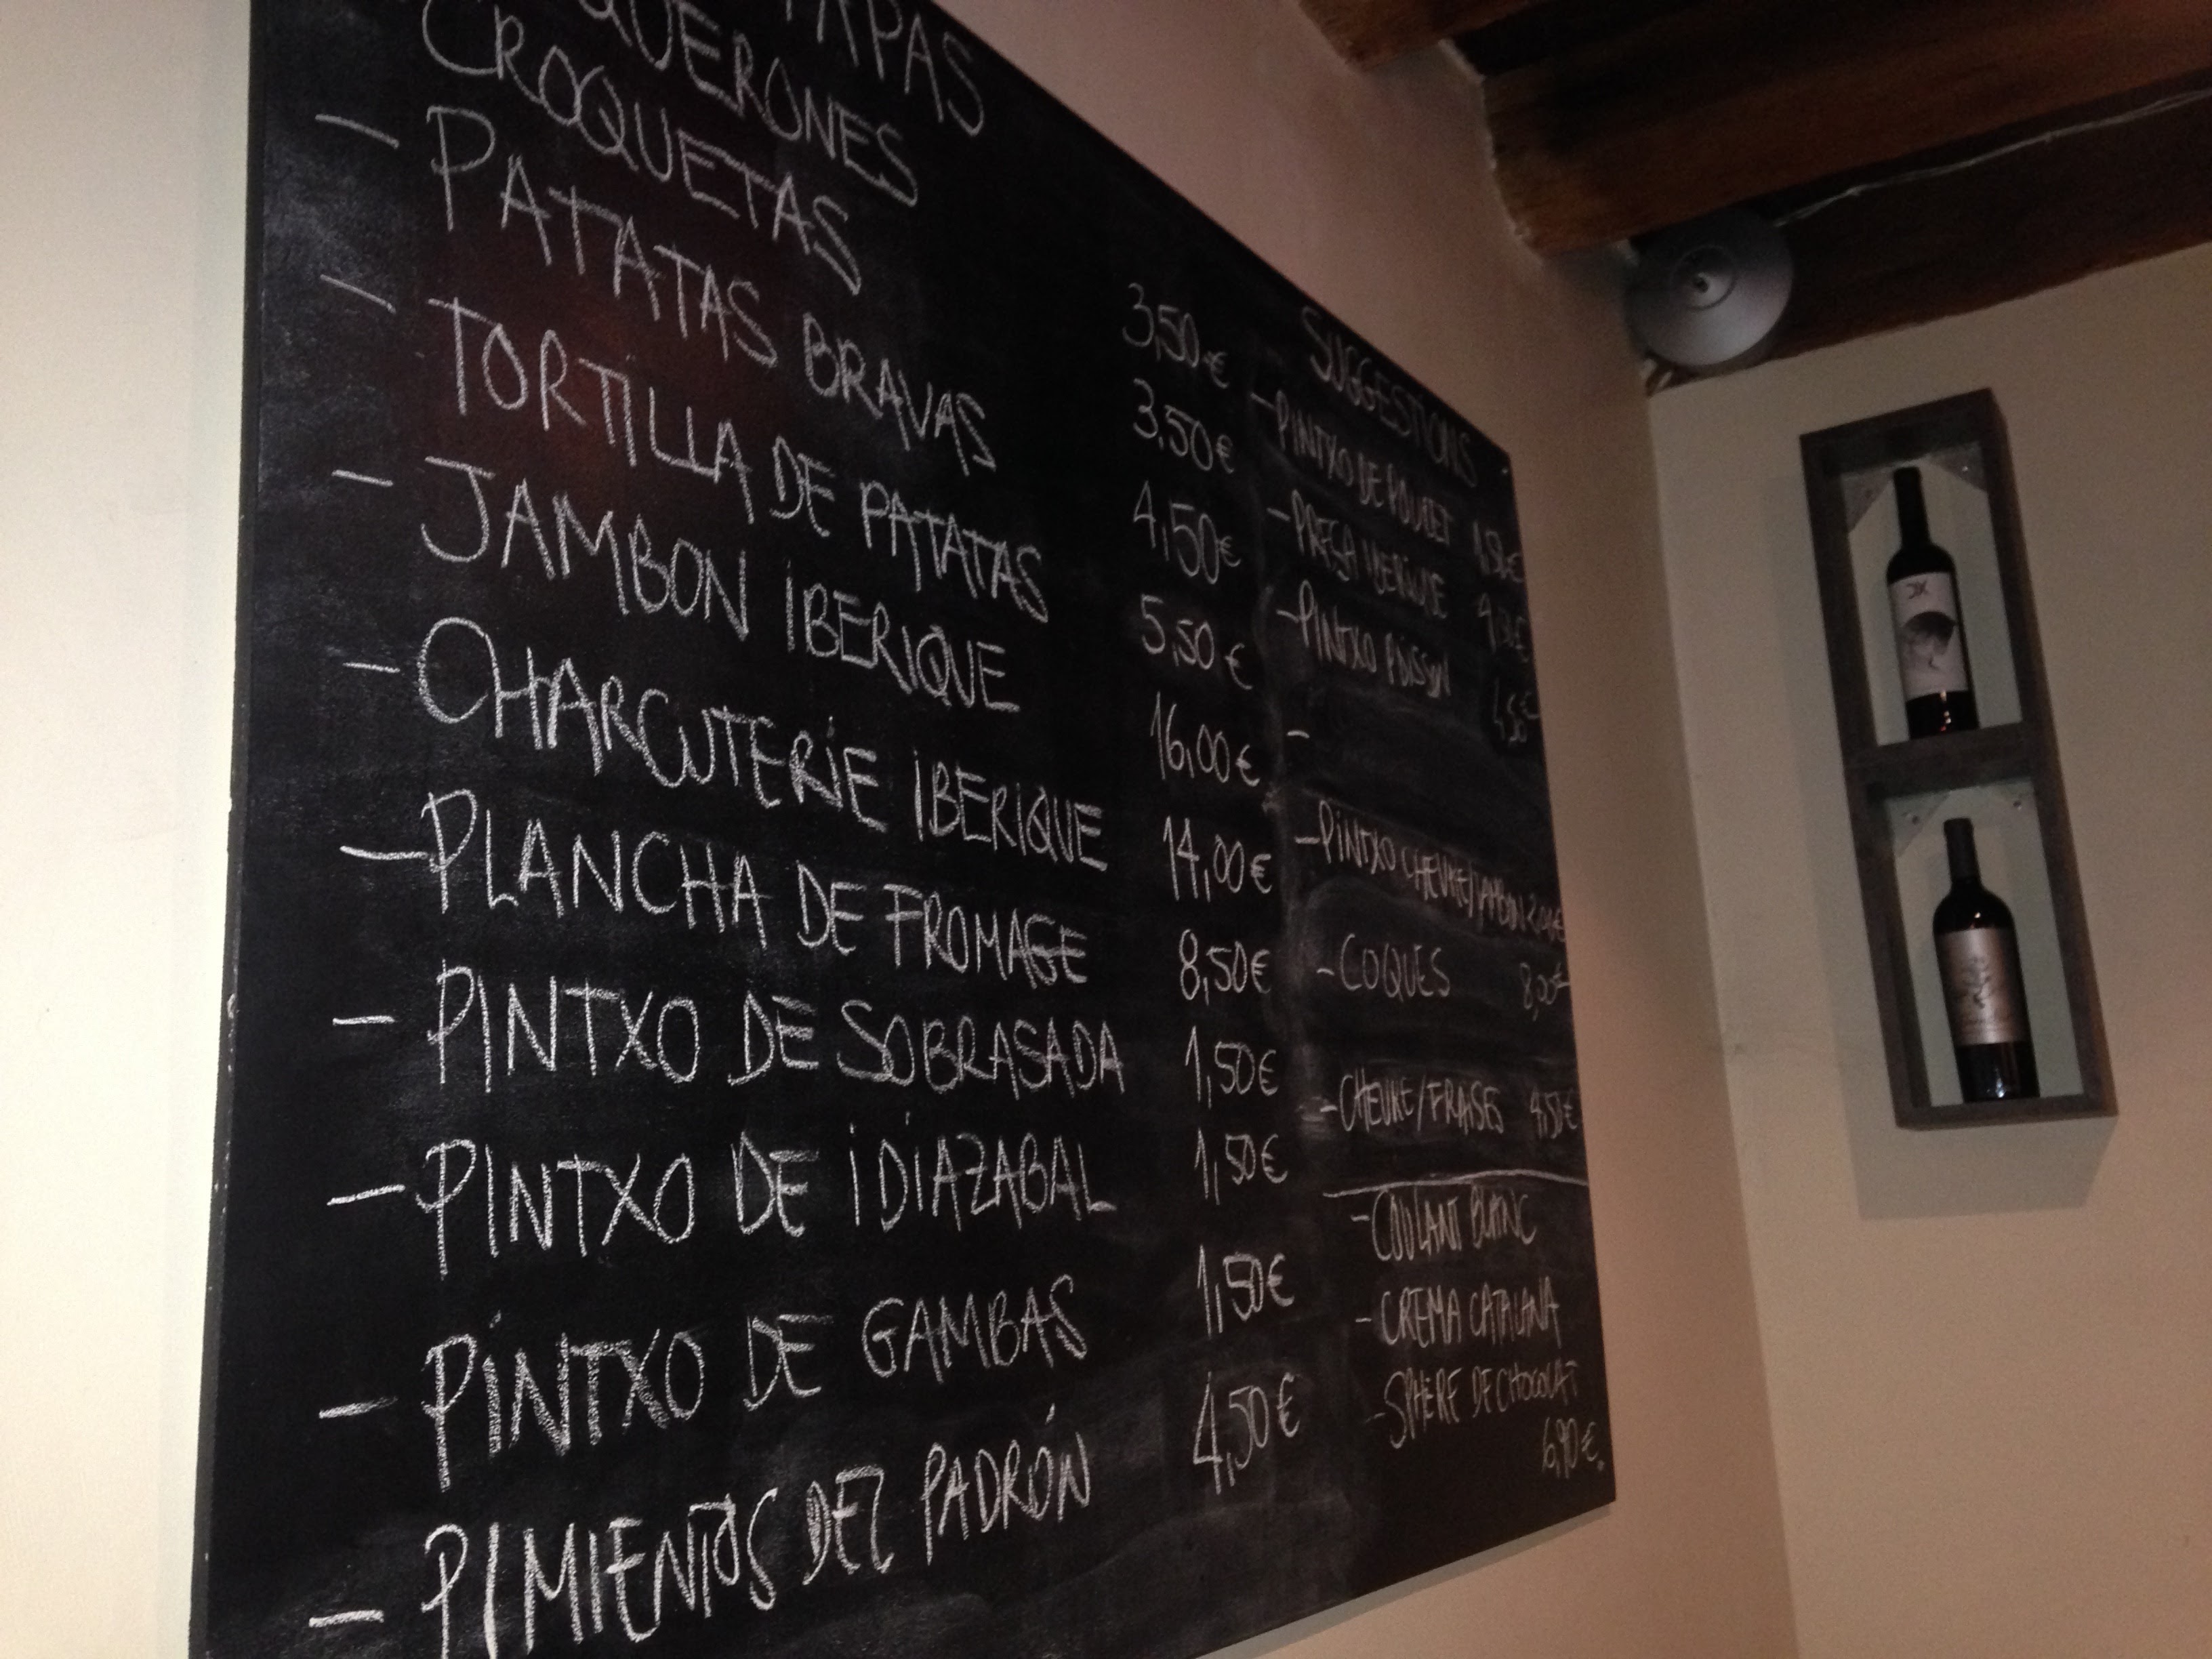 TAPAS
QUERONES 3,50€
CROQUETAS 3,50€
- PATATAS BRAVAS 4,50€
- TORTILLA DE PATATAS 5,50€
- JAMBON IBERIQUE 16,00€
- CHARCUTERIE IBERIQUE 14,00€
- PLANCHA DE FROMAGE 8,50€
- PINTXO DE SOBRASADA 1,50€
- PINTXO DE IDIAZABAL 1,50€
- PINTXO DE GAMBAS 1,50€
- PIMIENTOS DEL PADRÓN 4,50€
SUGGESTIONS
- PINTXO DE POULET 1,50€
- PRESA IBERIQUE
- PINTXO POISSON
-
- PINTXO CHEVRE/JAMBON 2,00€
- COQUES 8,00€
- CHEVRE/FRAISES 4,50€
- COULANT BLANC
- CREMA CATALANA
- SPHÈRE DE CHOCOLAT
6,90€.